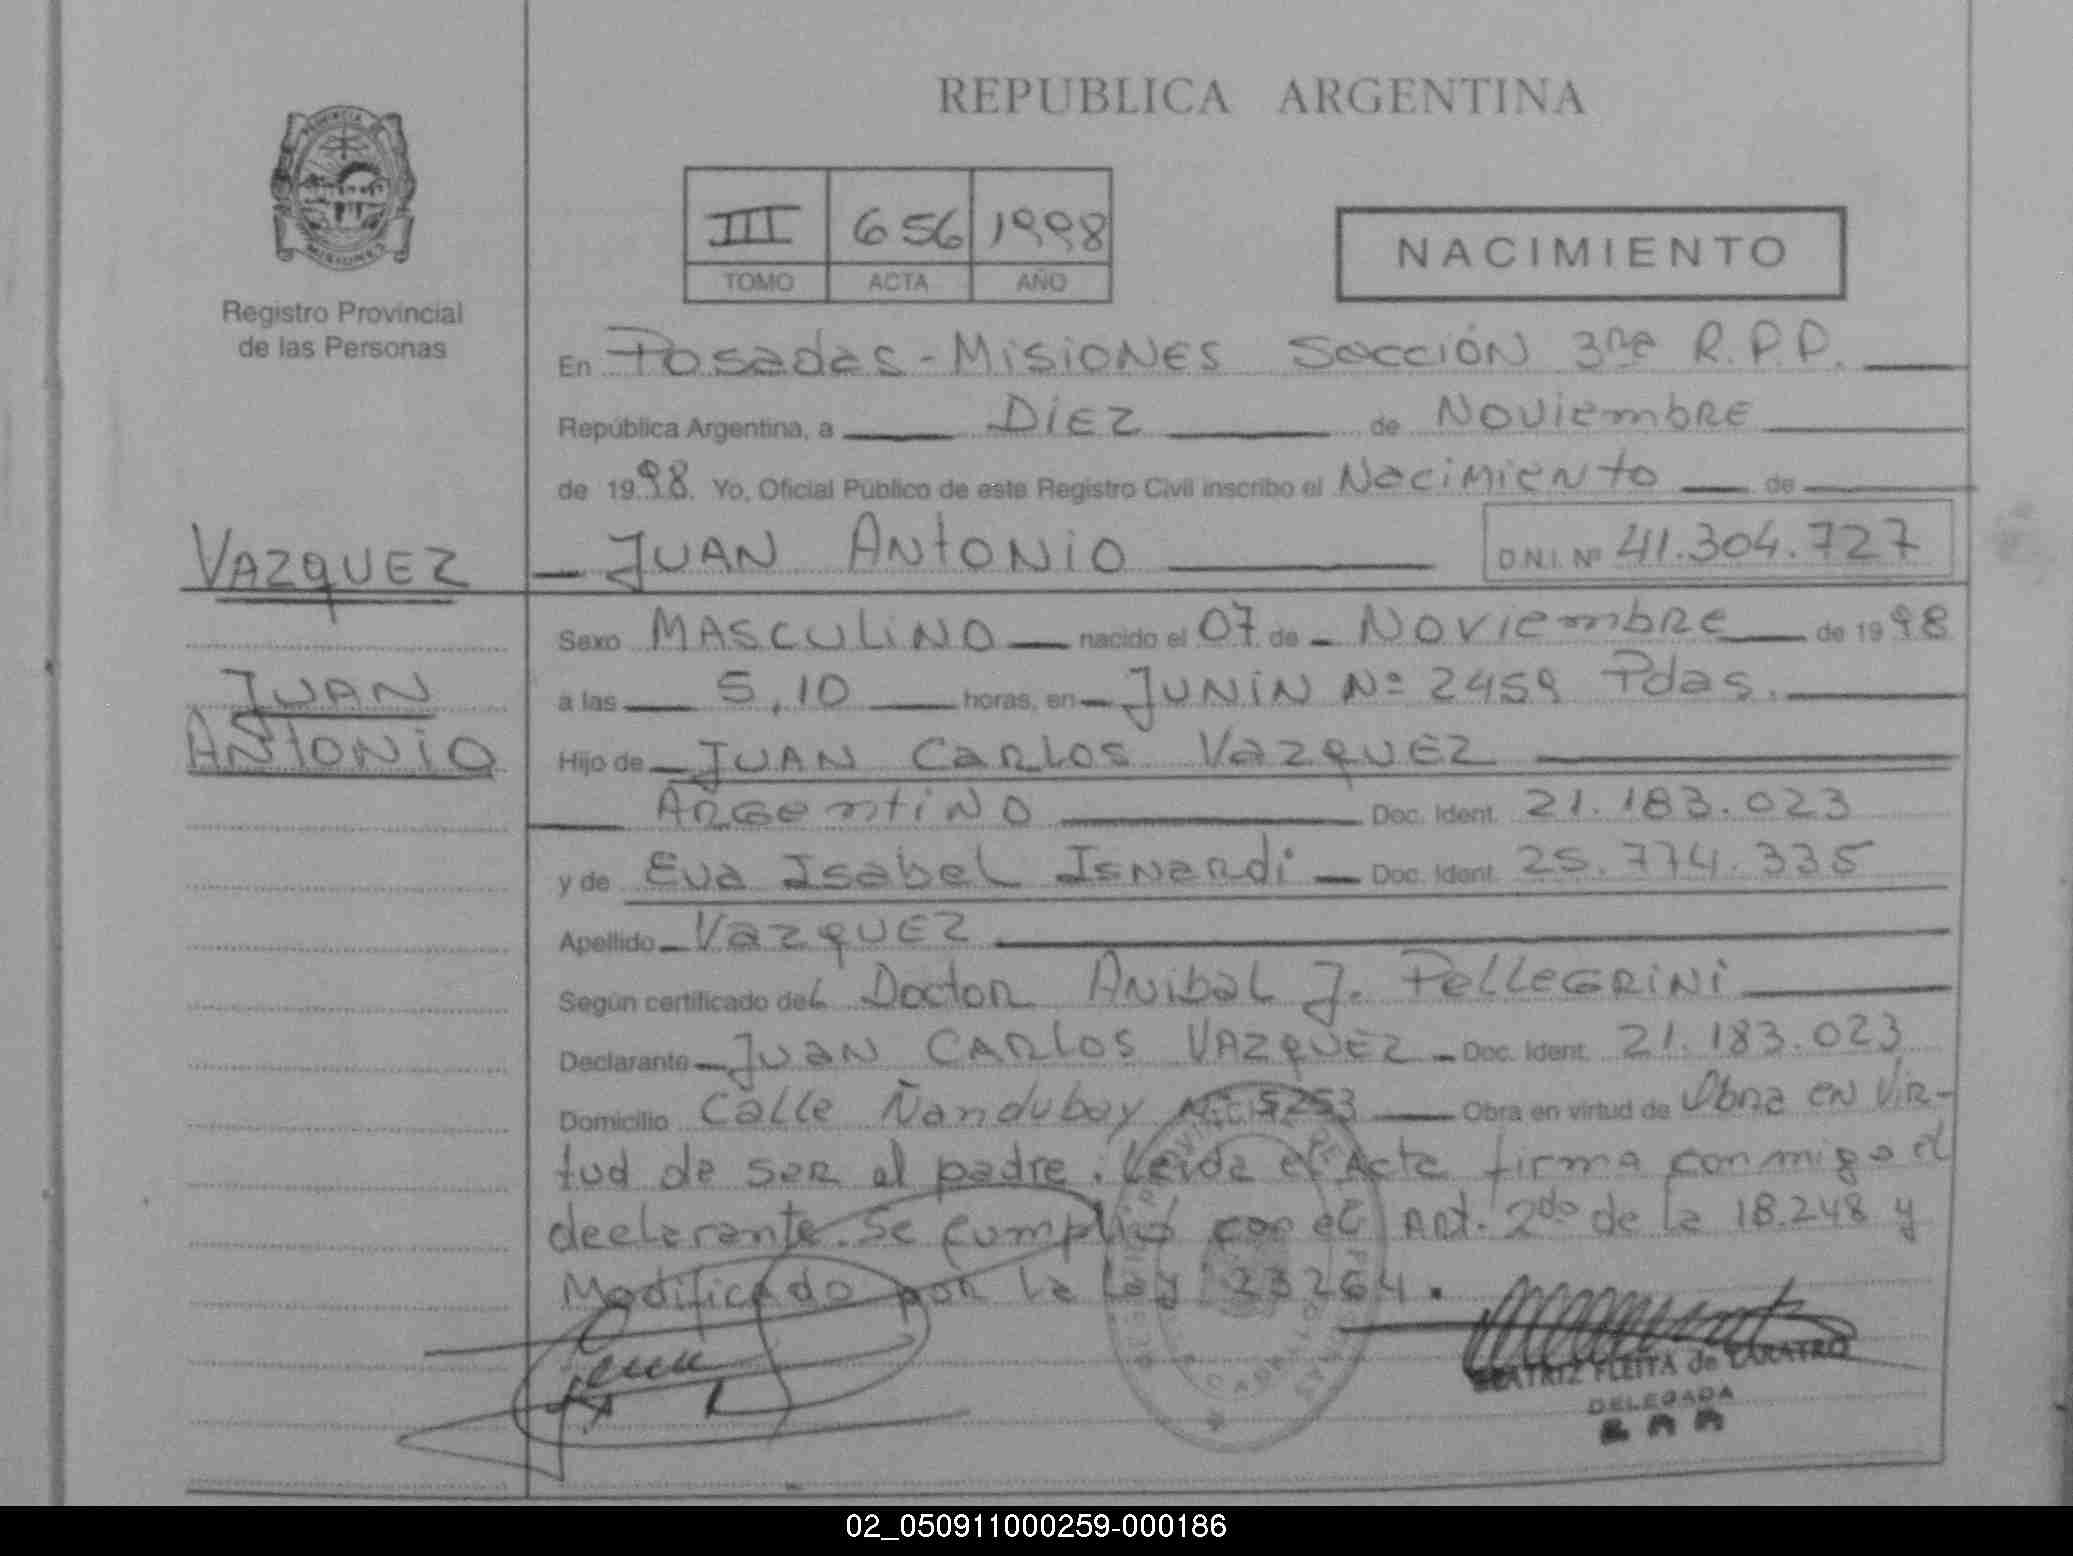 REPUBLICA ARGENTINA
PROVINCIA DE
MISIONES
Registro Provincial
de las Personas
III 656 1998
TOMO ACTA AÑO
NACIMIENTO
En Posadas - Misiones Sección 3ra R.P.P.
República Argentina, a Diez de Noviembre
de 1998. Yo, Oficial Público de este Registro Civil inscribo el Nacimiento de
VAZQUEZ
JUAN ANTONIO D.N.I. Nº 41.304.727
Sexo MASCULINO nacido el 07 de Noviembre de 1998
JUAN
ANTONIO
a las 5,10 horas, en JUNIN Nº 2459 Pdas.
Hijo de JUAN Carlos Vazquez
Argentino Doc. Ident. 21.183.023
y de Eva Isabel Isnardi Doc. Ident. 25.774.335
Apellido Vazquez
Según certificado del Doctor Anibal J. Pellegrini
Declarante Juan Carlos Vazquez Doc. Ident. 21.183.023
Domicilio Calle Ñandubay Nº 5253 Obra en virtud de Obra en vir-
tud de ser el padre. Leida el Acta firma conmigo el
declarante. Se cumplió con el Art. 2do de la 18.248 y
Modificado por la Ley 23264.
BEATRIZ FLEITA de
DELEGADA
02_050911000259-000186